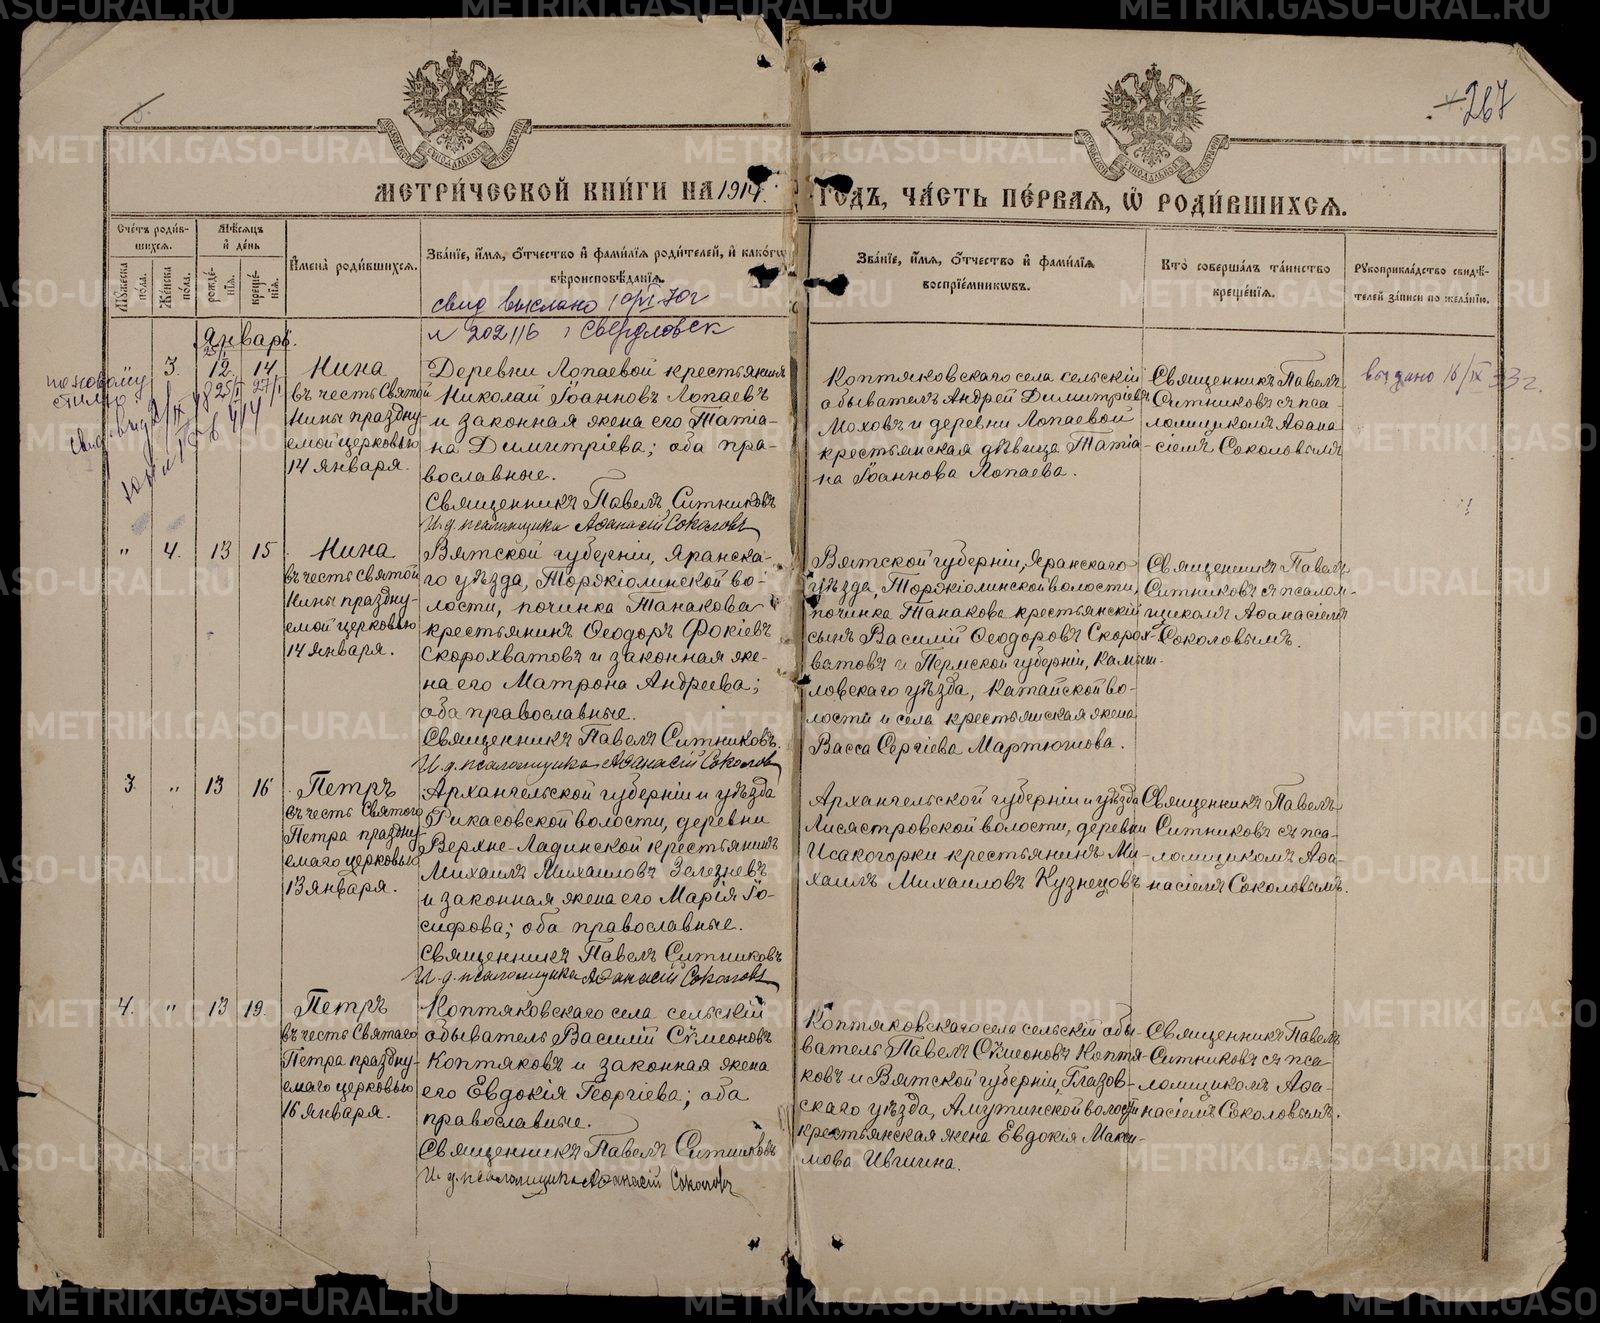 267
МЕТРИ́ЧЕСКОЙ КНИ́ГИ НА 1914 ГОДЪ, ЧА́СТЬ ПЕ́РВАЯ, Ѡ҆ РОДИ́ВШИХСѦ.
Счётъ роди́вшихсѧ.
Мꙋ́жеска по́ла.
Же́нска по́ла.
Мѣ́сѧцъ и҆ де́нь
рожде́нїѧ.
креще́нїѧ.
И҆мена̀ роди́вшихсѧ.
Зва́нїе, и҆́мѧ, ѻ҆́тчество и҆ фами́лїѧ роди́телей, и҆ како́гѡ
вѣроисповѣ́данїѧ.
Зва́нїе, и҆́мѧ, ѻ҆́тчество и҆ фами́лїѧ
воспрїе́мникѡвъ.
Кто̀ соверша́лъ та́инство
креще́нїѧ.
Рꙋкоприкла́дство свидѣ́-
телей за́писи по жела́нїю.
свид выслано
№ 202116 г Свердловск
Январь.
по новому
стилю
25/I 27/I
3. 12. 14.
Нина
въ честь Святой
Нины праздну-
емой церковью
14 января.
Деревни Лопаевой крестьянинъ
Николай Іоанновъ Лопаевъ
и законная жена его Татіа-
на Димитріева; оба пра-
вославные.
Священникъ Павелъ Ситниковъ
И. д. псаломщика Аѳанасій Соколовъ
Коптяковскаго села сельскій
обыватель Андрей Димитріевъ
Моховъ и деревни Лопаевой
крестьянская дѣвица Татіа-
на Іоаннова Лопаева.
Священникъ Павелъ
Ситниковъ съ пса-
ломщикомъ Аѳана-
сіемъ Соколовымъ
выдано 16/IX 33 г.
" 4. 13 15
Нина
въ честь Святой
Нины праздну-
емой церковью
14 января.
Вятской губерніи, Яранска-
го уѣзда, Торжіолинской во-
лости, починка Танакова
крестьянинъ Ѳеодоръ Фокіевъ
Скорохватовъ и законная же-
на его Матрона Андреева;
оба православные.
Священникъ Павелъ Ситниковъ.
И. д. псаломщика Аѳанасій Соколовъ
Вятской губерніи, Яранскаго
уѣзда, Торжіолинской волости,
починка Танакова крестьянскій
сынъ Василій Ѳеодоровъ Скорох-
ватовъ и Пермской губерніи, Камыш-
ловскаго уѣзда, Катайской во-
лости и села крестьянская жена
Васса Сергіева Мартюшова.
Священникъ Павелъ
Ситниковъ съ псалом-
щикомъ Аѳанасіемъ
Соколовымъ.
3. " 13 16
Петръ
въ честь Святого
Петра праздну-
емаго церковью
13 января.
Архангельской губерніи и уѣзда
Рикасовской волости, деревни
Верхне-Ладинской крестьянинъ
Михаилъ Михаиловъ Зелезневъ
и законная жена его Марія Іо-
сифова; оба православные.
Священникъ Павелъ Ситниковъ
И. д. псаломщика Аѳанасій Соколовъ
Архангельской губерніи и уѣзда
Лисястровской волости, деревни
Исакогорки крестьянинъ Ми-
хаилъ Михаиловъ Кузнецовъ
Священникъ Павелъ
Ситниковъ съ пса-
ломщикомъ Аѳа-
насіемъ Соколовымъ.
4. " 13 19.
Петръ
въ честь Святаго
Петра праздну-
емаго церковью
16 января.
Коптяковскаго села сельскій
обыватель Василій Сѵмеоновъ
Коптяковъ и законная жена
его Евдокія Георгіева; оба
православные.
Священникъ Павелъ Ситниковъ
И. д. псаломщика Аѳанасій Соколовъ
Коптяковскаго села сельскій обы-
ватель Павелъ Сѵмеоновъ Коптя-
ковъ и Вятской губерніи, Глазов-
скаго уѣзда, Омутнинской волости
крестьянская жена Евдокія Макси-
мова Ившина.
Священникъ Павелъ
Ситниковъ съ пса-
ломщикомъ Аѳа-
насіемъ Соколовымъ.
METRIKI.GASO-URAL.RU